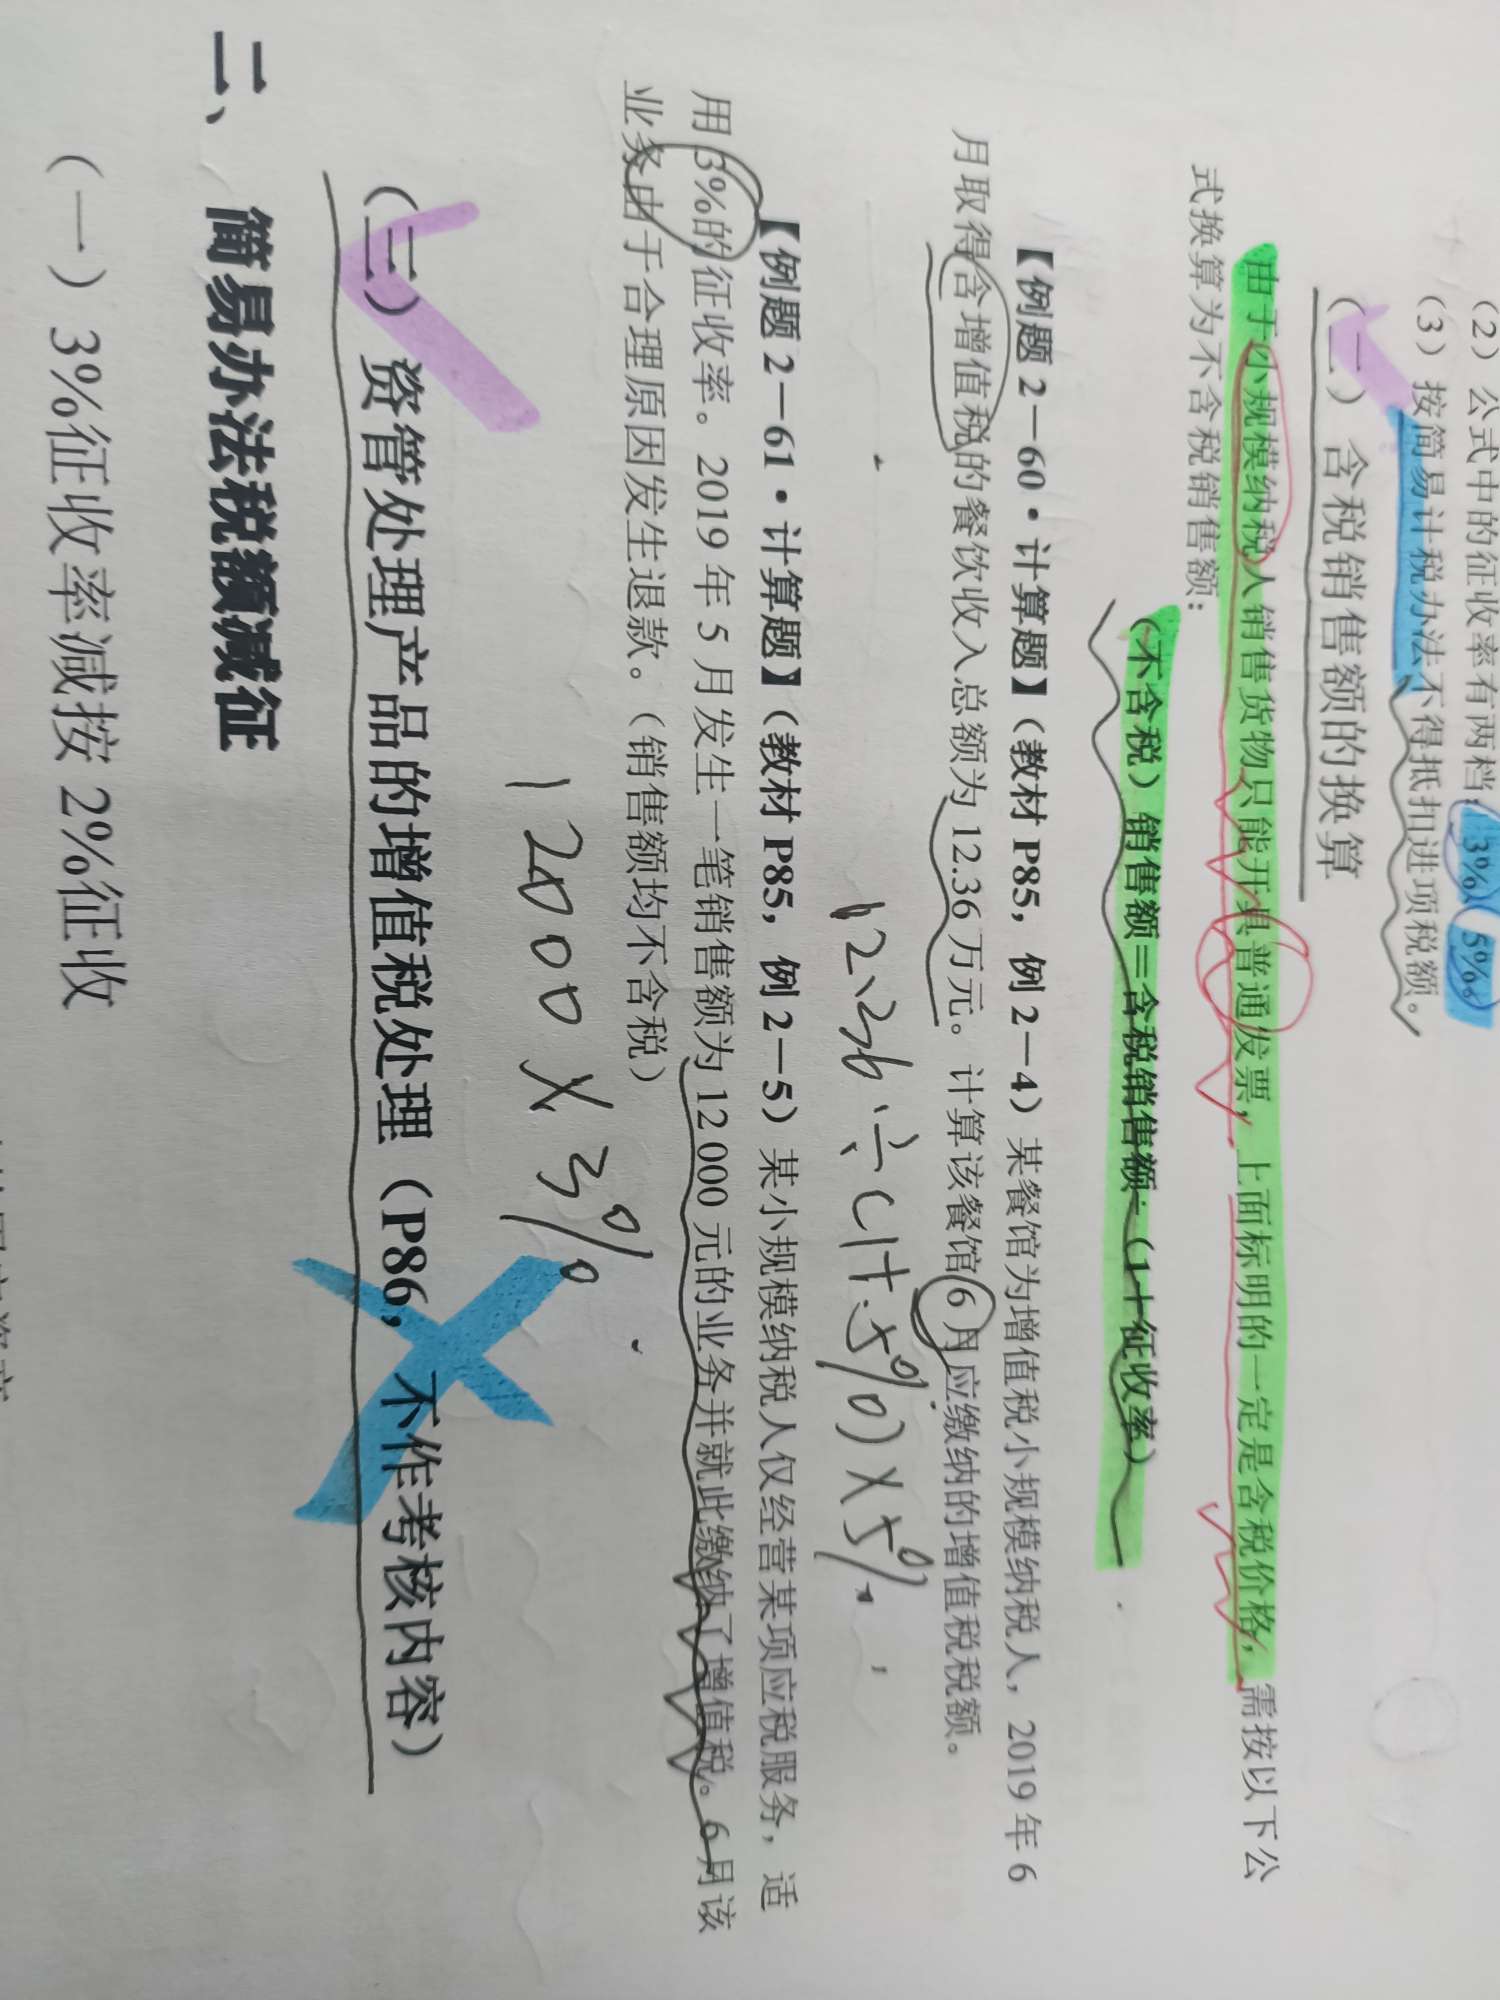 （2）公式中的征收率有两档：3%、5%。
（3）按简易计税办法不得抵扣进项税额。
（二）含税销售额的换算
由于小规模纳税人销售货物只能开具普通发票，上面标明的一定是含税价格，需按以下公
式换算为不含税销售额：
（不含税）销售额＝含税销售额÷（1＋征收率）
【例题 2—60·计算题】（教材 P85，例 2—4）某餐馆为增值税小规模纳税人，2019 年 6
月取得含增值税的餐饮收入总额为 12.36 万元。计算该餐馆 6 月应缴纳的增值税税额。
12.36÷(1+5%)×5%
【例题 2—61·计算题】（教材 P85，例 2—5）某小规模纳税人仅经营某项应税服务，适
用 3%的征收率。2019 年 5 月发生一笔销售额为 12 000 元的业务并就此缴纳了增值税。6 月该
业务由于合理原因发生退款。（销售额均不含税）
1200×3%
（三）资管处理产品的增值税处理（P86，不作考核内容）
二、简易办法税额减征
（一）3%征收率减按 2%征收